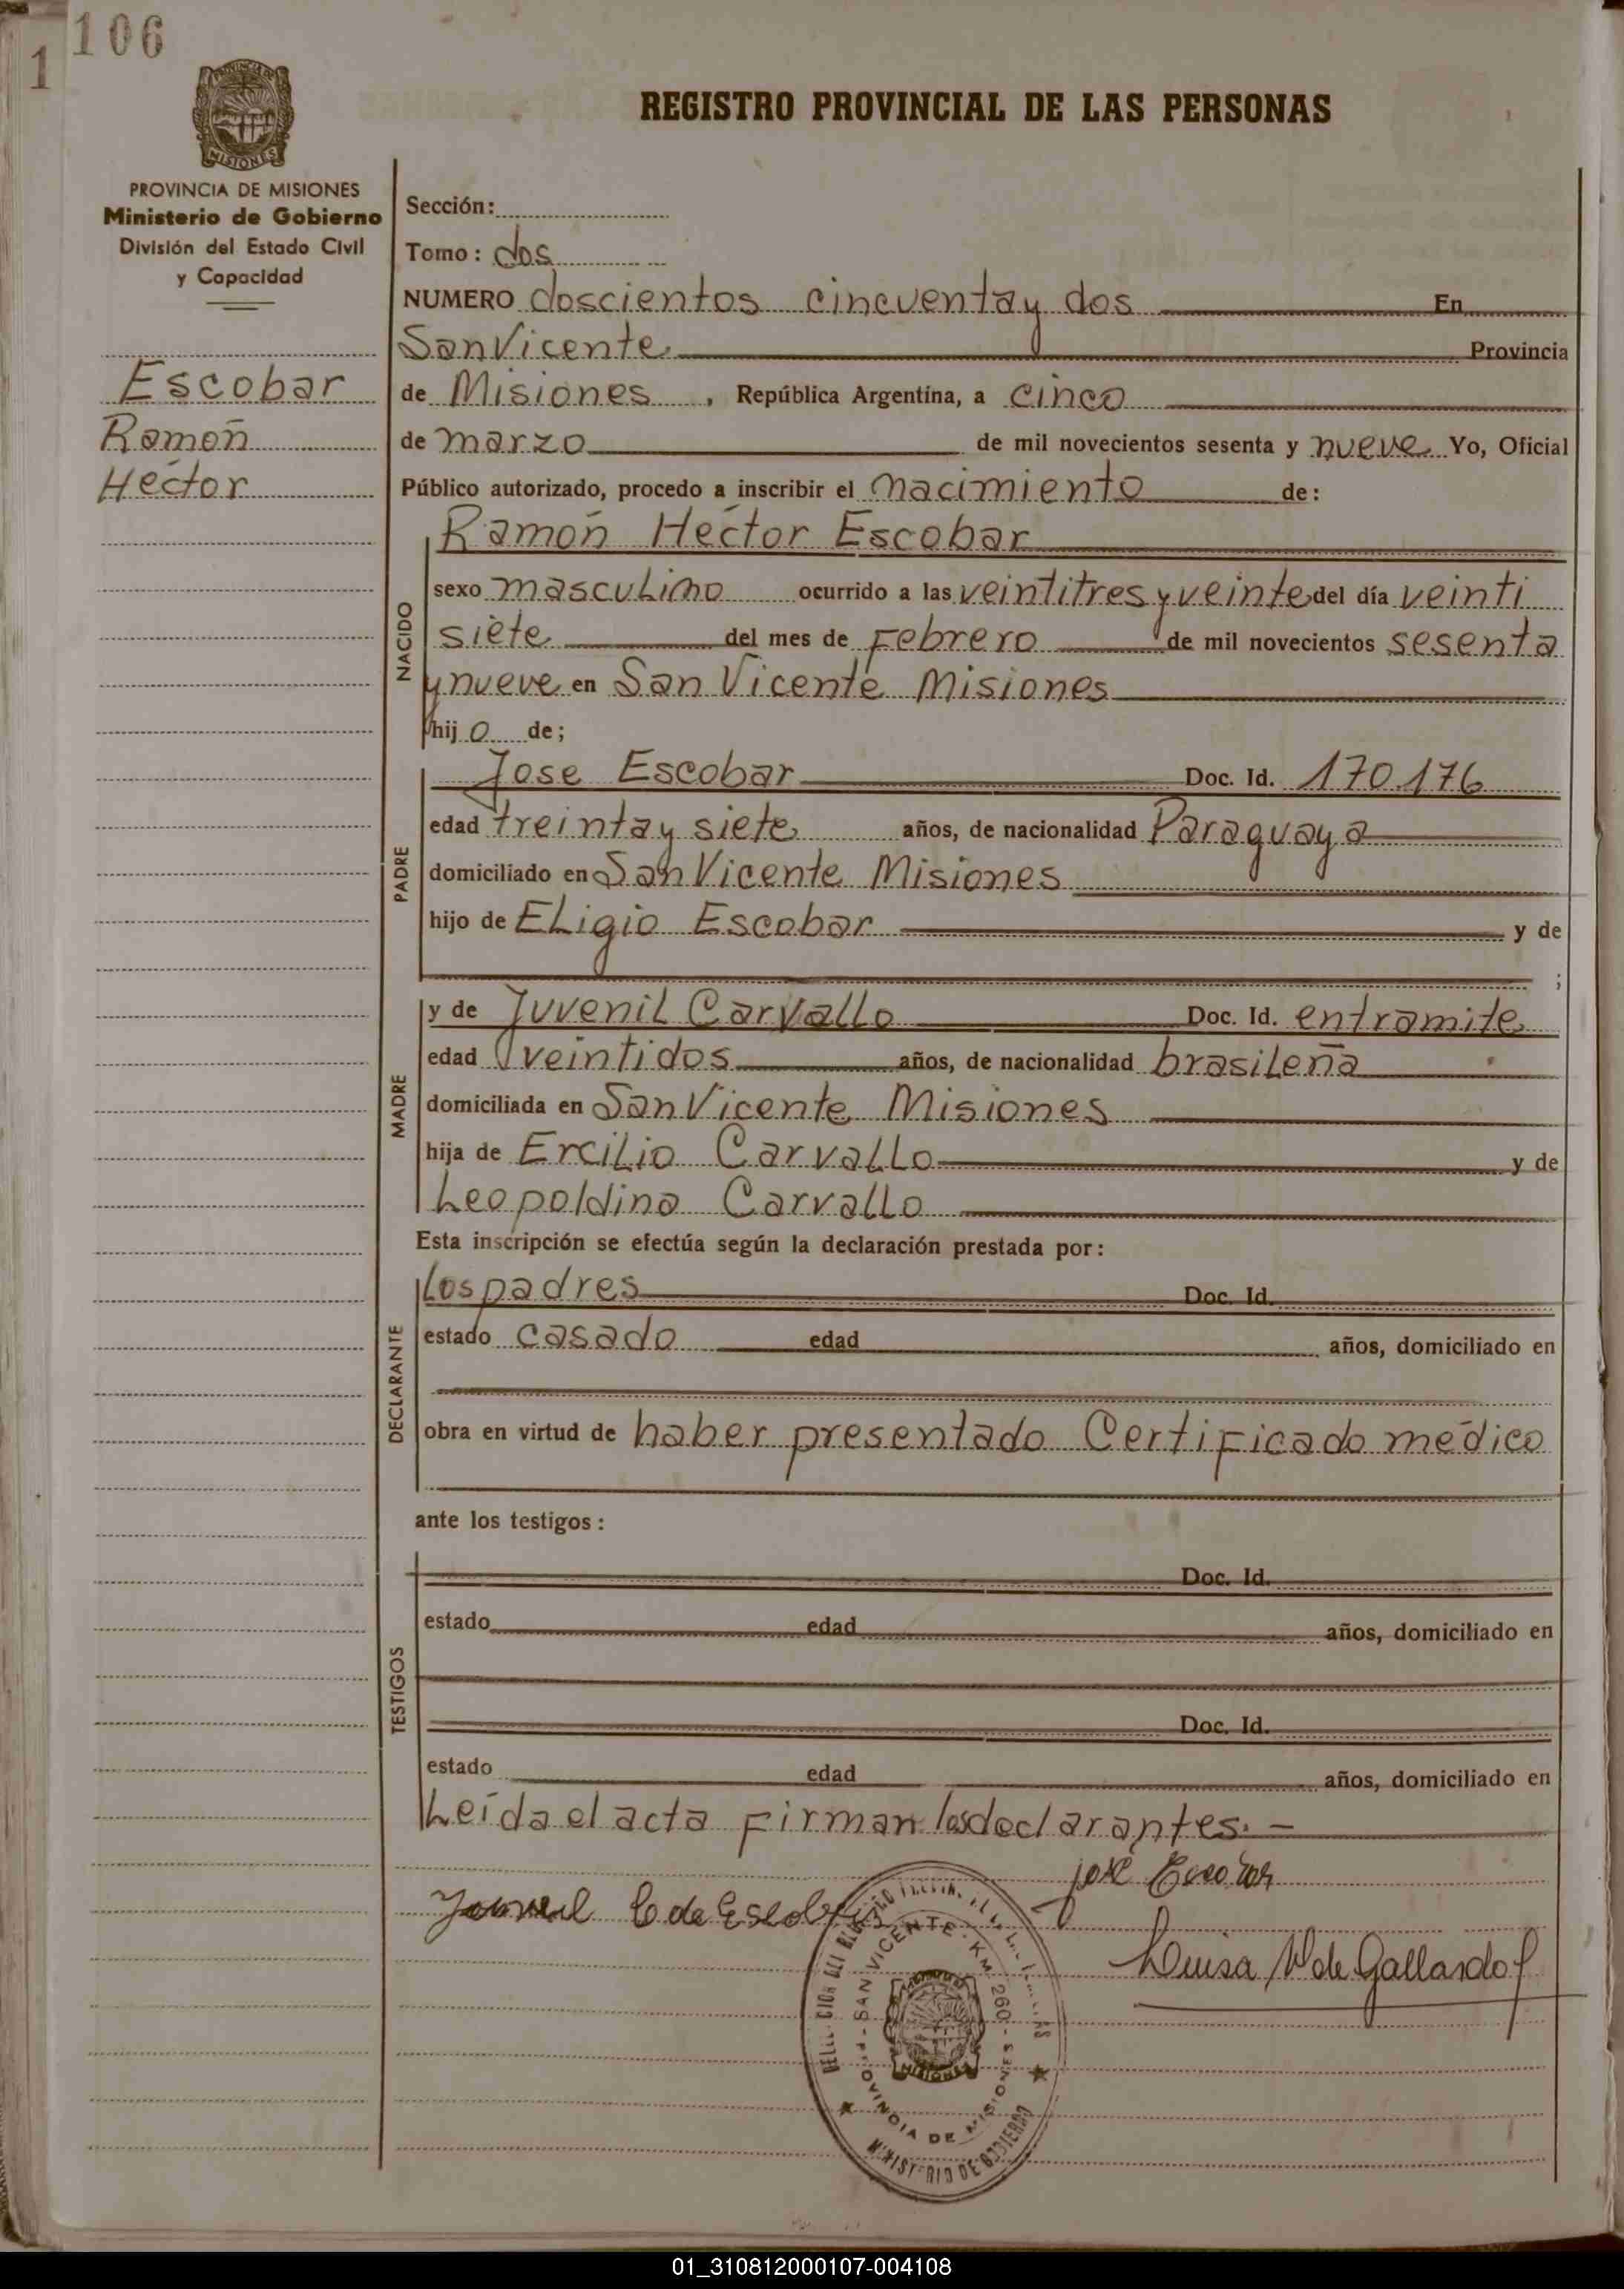 106
1
REGISTRO PROVINCIAL DE LAS PERSONAS
MISIONES
PROVINCIA DE MISIONES
Ministerio de Gobierno
División del Estado Civil
y Capacidad
Escobar
Ramón
Héctor
Sección:
Tomo: dos
NUMERO doscientos cincuenta y dos En
San Vicente Provincia
de Misiones, República Argentina, a cinco
de marzo de mil novecientos sesenta y nueve Yo, Oficial
Público autorizado, procedo a inscribir el nacimiento de:
NACIDO
Ramón Héctor Escobar
sexo masculino ocurrido a las veintitres y veinte del día veinti
siete del mes de Febrero de mil novecientos sesenta
y nueve en San Vicente Misiones
hijo de;
PADRE
Jose Escobar Doc. Id. 170.176
edad treinta y siete años, de nacionalidad Paraguaya
domiciliado en San Vicente Misiones
hijo de Eligio Escobar y de
;
MADRE
y de Juvenil Carvallo Doc. Id. en tramite
edad veintidos años, de nacionalidad brasileña
domiciliada en San Vicente Misiones
hija de Ercilio Carvallo y de
Leopoldina Carvallo
Esta inscripción se efectúa según la declaración prestada por:
DECLARANTE
los padres Doc. Id.
estado casado edad años, domiciliado en
obra en virtud de haber presentado Certificado médico
ante los testigos:
TESTIGOS
Doc. Id.
estado edad años, domiciliado en
Doc. Id.
estado edad años, domiciliado en
Leída el acta firman los declarantes. -
José Escobar
C de Escobar
Luisa V de Gallardo
SAN VICENTE - KM 260 -
PROVINCIA DE MISIONES
MISIONES
MINISTERIO DE GOBIERNO
01_310812000107-004108